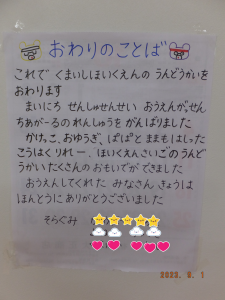 おわりのことば
これで くまいしほいくえんの うんどうかいを
おわります
まいにち せんしゅせんせい おうえんがっせん
ちあがーるの れんしゅうを がんばりました
かけっこ、おゆうぎ、ぱぱと ままも はしった
こうはく りれー、ほいくえんさいごの うんど
うかい たくさんの おもいでが できました
おうえんしてくれた みなさん きょうは
ほんとうに ありがとうございました
そらぐみ
2023. 9. 1